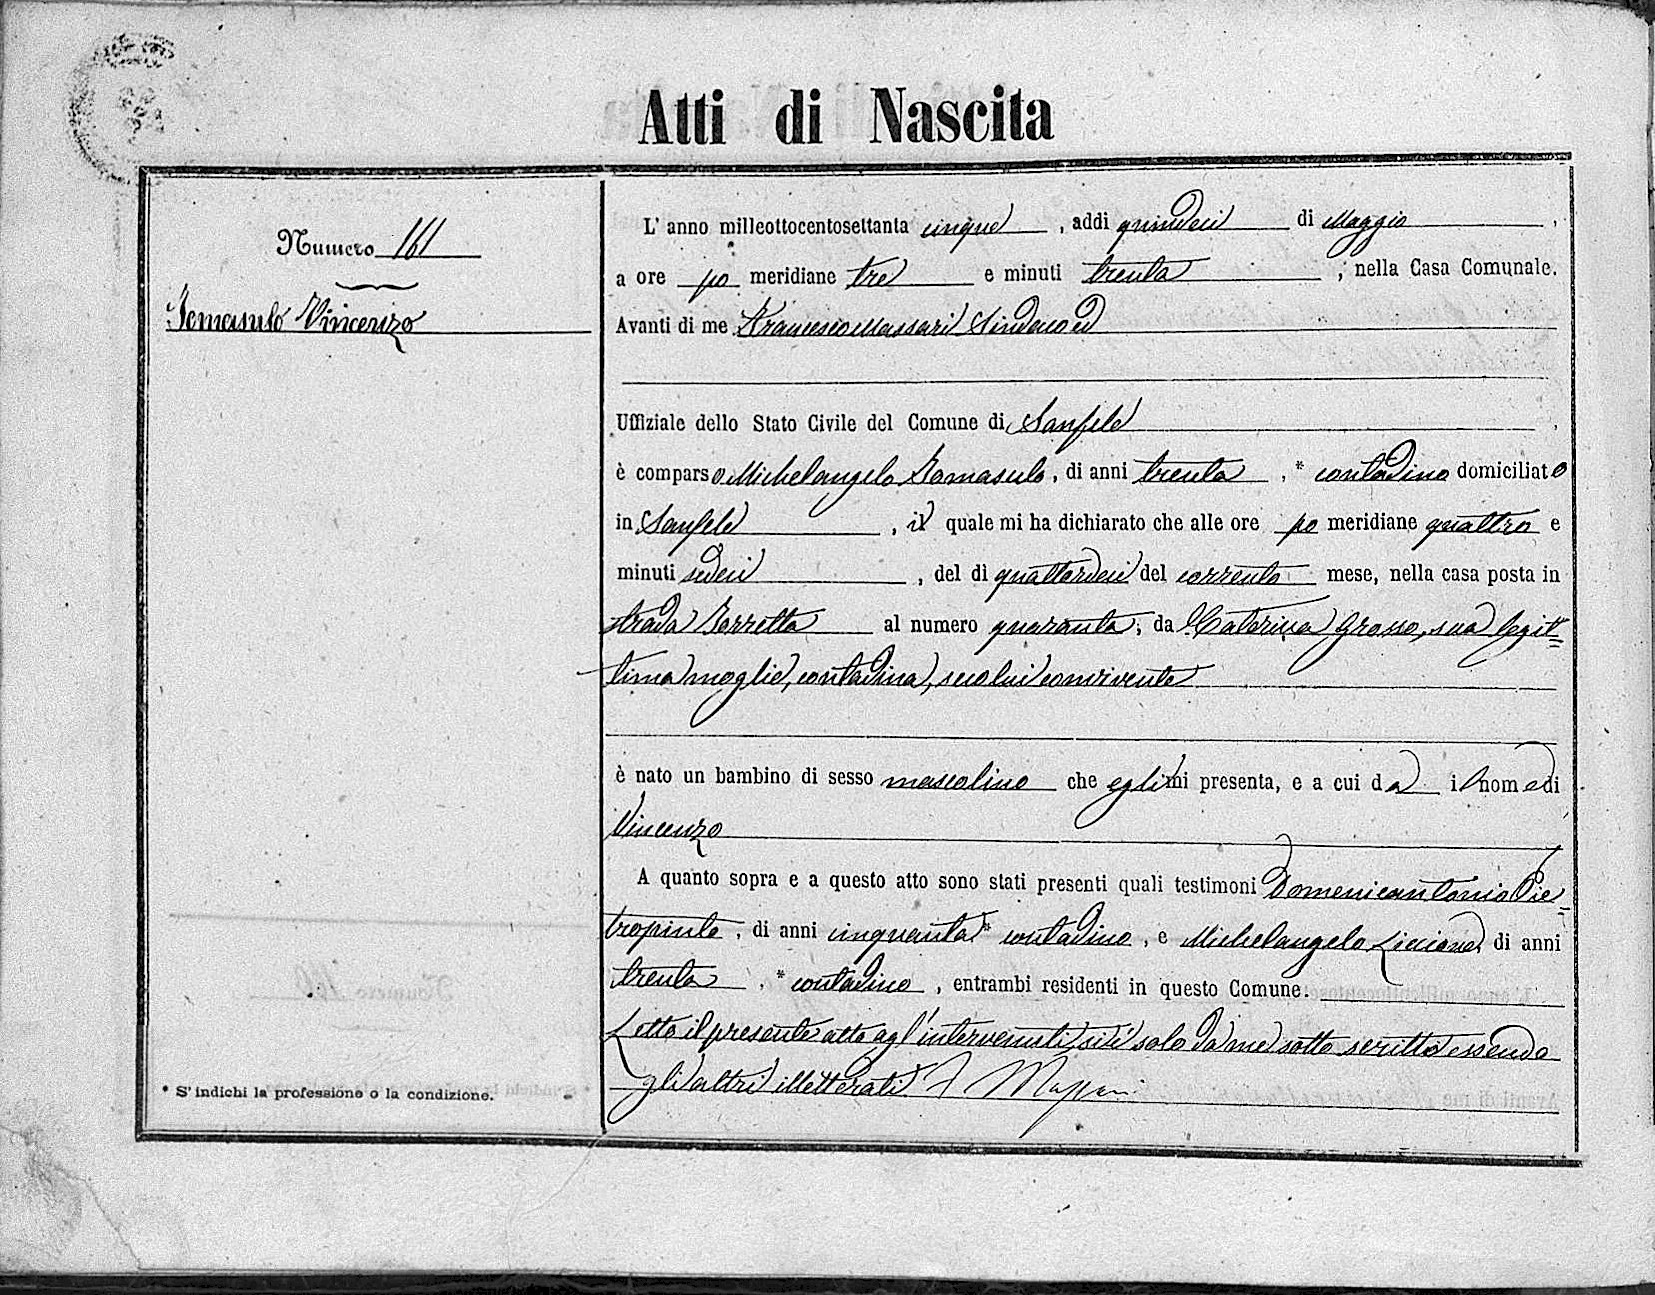 Atti di Nascita
Numero 161
Tomasulo Vincenzo
* S' indichi la professione o la condizione.
L' anno milleottocentosettanta cinque, addi quindeci di Maggio,
a ore po meridiane tre e minuti trenta, nella Casa Comunale.
Avanti di me Francesco Massari Sindaco ed
Uffiziale dello Stato Civile del Comune di Sanfele,
è comparso Michelangelo Tomasulo, di anni trenta, * contadino domiciliato
in Sanfele, il quale mi ha dichiarato che alle ore po meridiane quattro e
minuti sedeci, del dì quattordeci del corrente mese, nella casa posta in
strada Borretta al numero quaranta, da Caterina Grosso, sua legit=
tima moglie, contadina, seco lui convivente
è nato un bambino di sesso mascolino che egli mi presenta, e a cui dà il nome di
Vincenzo
A quanto sopra e a questo atto sono stati presenti quali testimoni Domenicantonio Pie=
tropinto, di anni cinquanta * contadino, e Michelangelo Liccione, di anni
trenta, * contadino, entrambi residenti in questo Comune.
Letto il presente atto agl'intervenuti, si è solo da me sotto scritto essendo
gli altri illetterati. F Massari